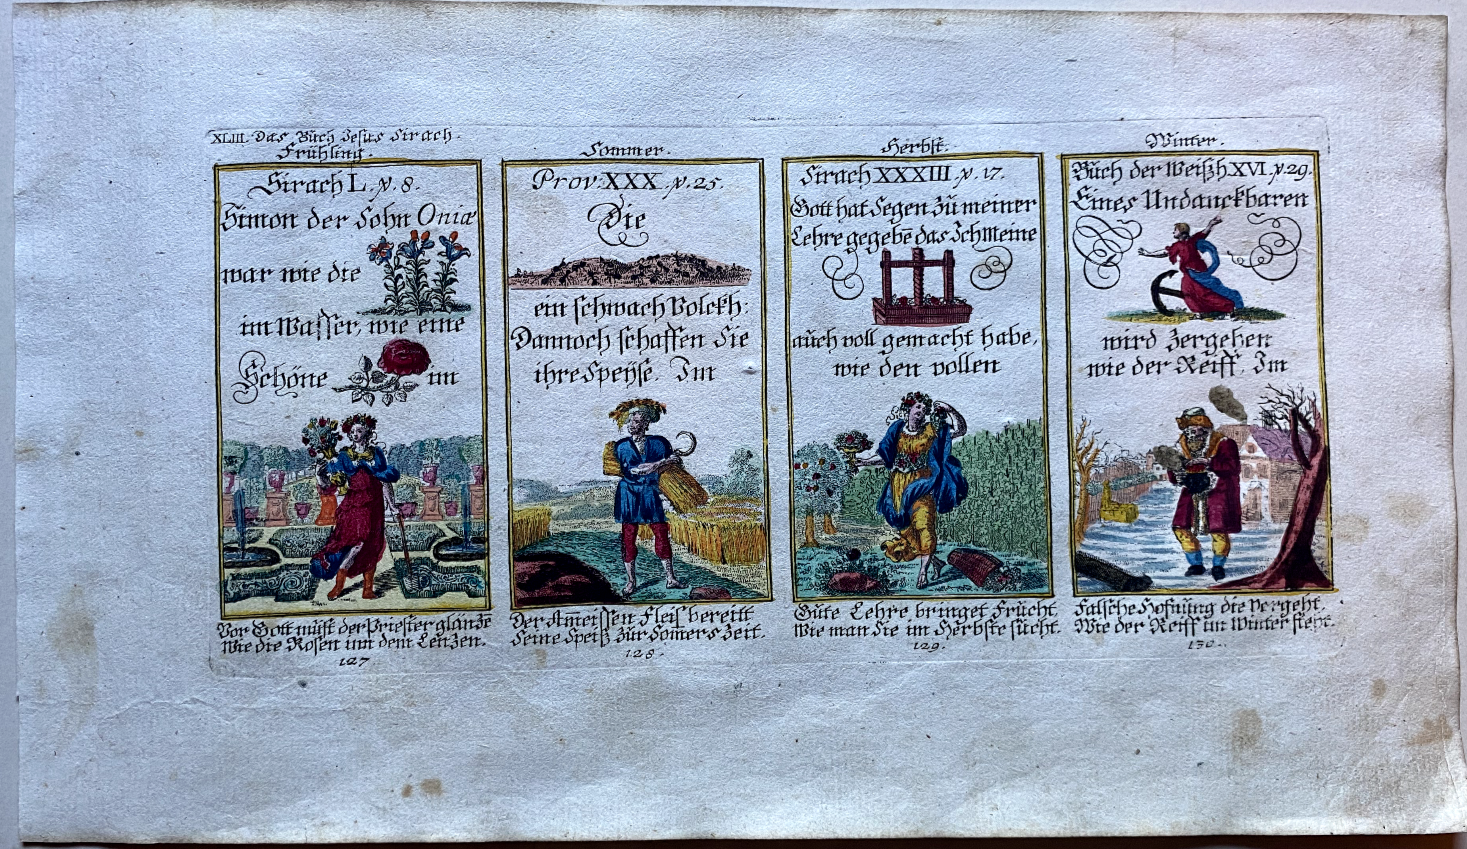 XLIII. Das Buch Jesus Sirach.
Frühling.
Sirach L. v. 8.
Simon der Sohn Oniæ
war wie die
im Wasser, wie eine
Schöne im
Vor Gott müst der Priester glänze
Wie die Rosen in dem Lenzen.
127
Sommer.
Prov: XXX. v. 25.
Die
ein schwach Volckh:
Dannoch schaffen Sie
ihre Speÿse. Im
Der Ameissen Fleis bereitt
Seine Speiß Zur Somers Zeit.
128.
Herbst.
Sirach XXXIII. v. 17.
Gott hat Segen Zü meiner
Lehre gegebē das Ich Meine
aüch voll gemacht habe,
wie den vollen
Güte Lehre, bringet Frücht,
Wie man Sie im Herbste sücht.
129.
Winter.
Büch der Weißh XVI. v. 29.
Eines Undanckbaren
wird Zergehen
wie der Reiff. Im
Falsche Hofnüng die vergeht,
Wie der Reiff im Winter steht.
130.